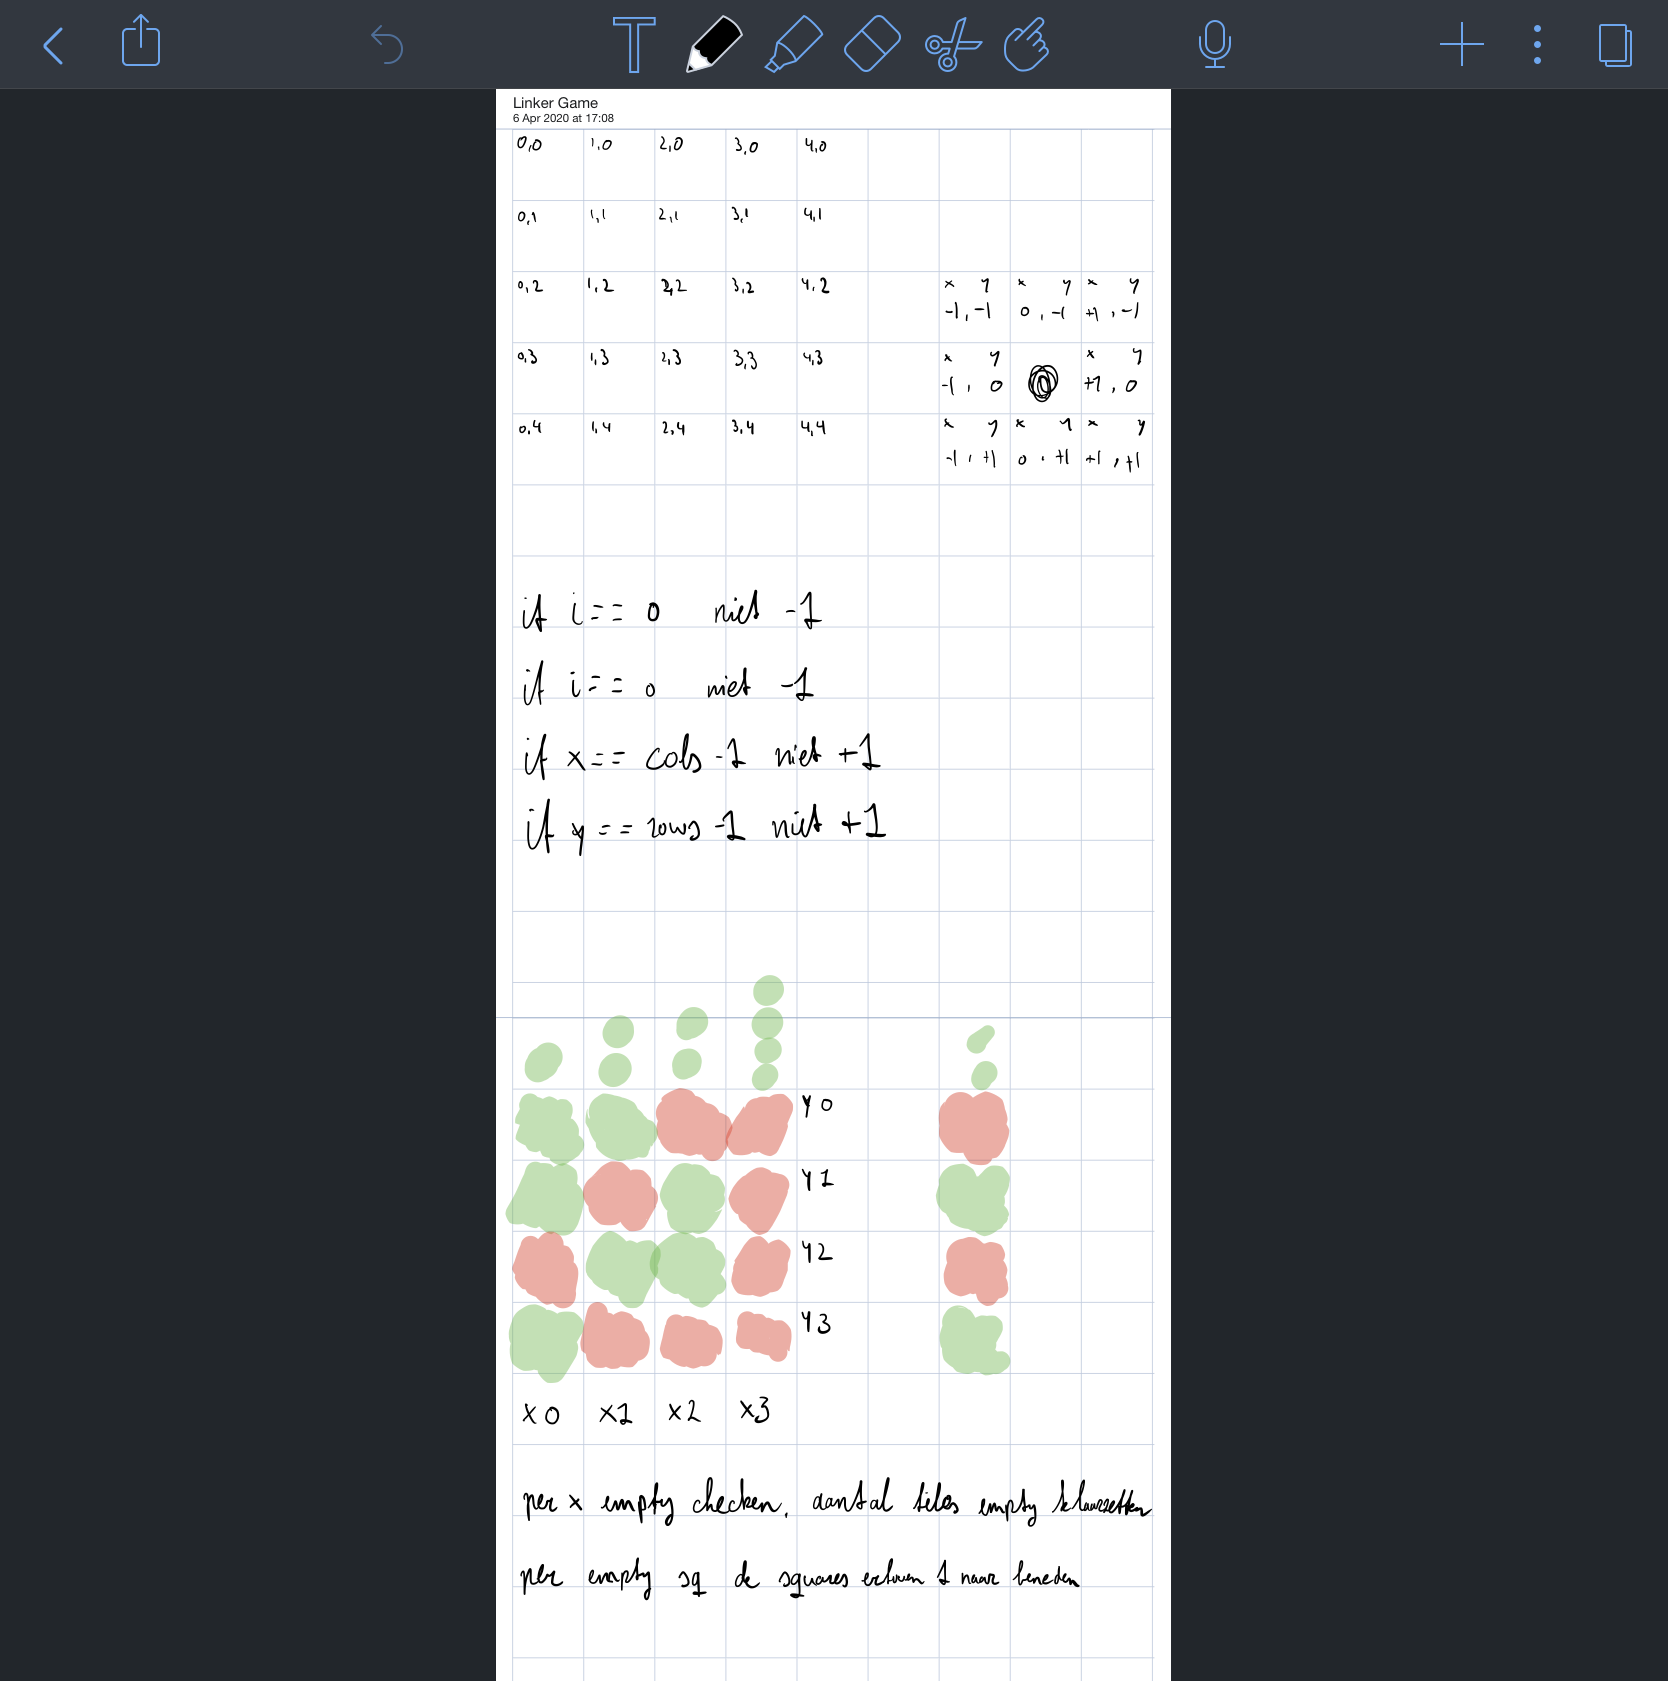 Linker Game
6 Apr 2020 at 17:08
0,0 1,0 2,0 3,0 4,0
0,1 1,1 2,1 3,1 4,1
0,2 1,2 2,2 3,2 4,2 x y x y x y
-1,-1 0,-1 +1,-1
0,3 1,3 2,3 3,3 4,3 x y x y
-1, 0 +1, 0
0,4 1,4 2,4 3,4 4,4 x y x y x y
-1, +1 0, +1 +1, +1
if i == 0 niet -1
if i == 0 niet -1
if x == cols -1 niet +1
if y == rows -1 niet +1
Y0
Y1
Y2
Y3
x0 x1 x2 x3
per x empty checken. aantal tiles empty klaarzetten
per empty sq de squares erboven 1 naar beneden